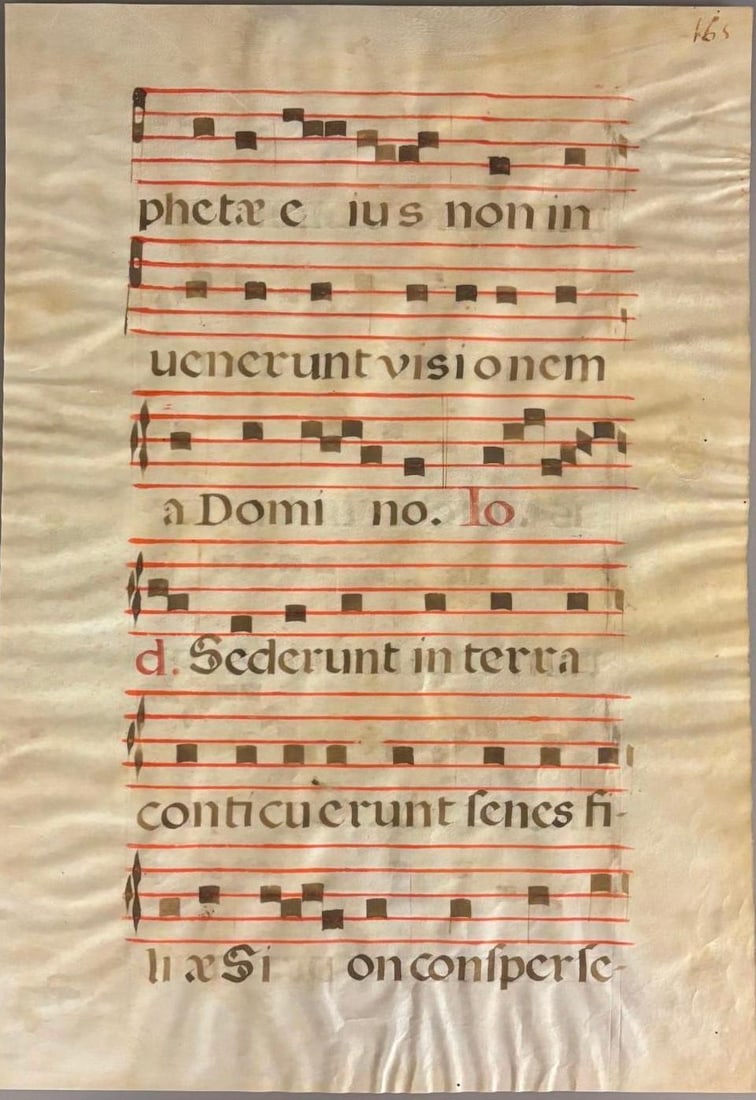 165
phetæ e ius non in
uenerunt visionem
a Domi no. Io
d. Sederunt in terra
conticuerunt ſenes fi-
li æ Si on conſperſe-